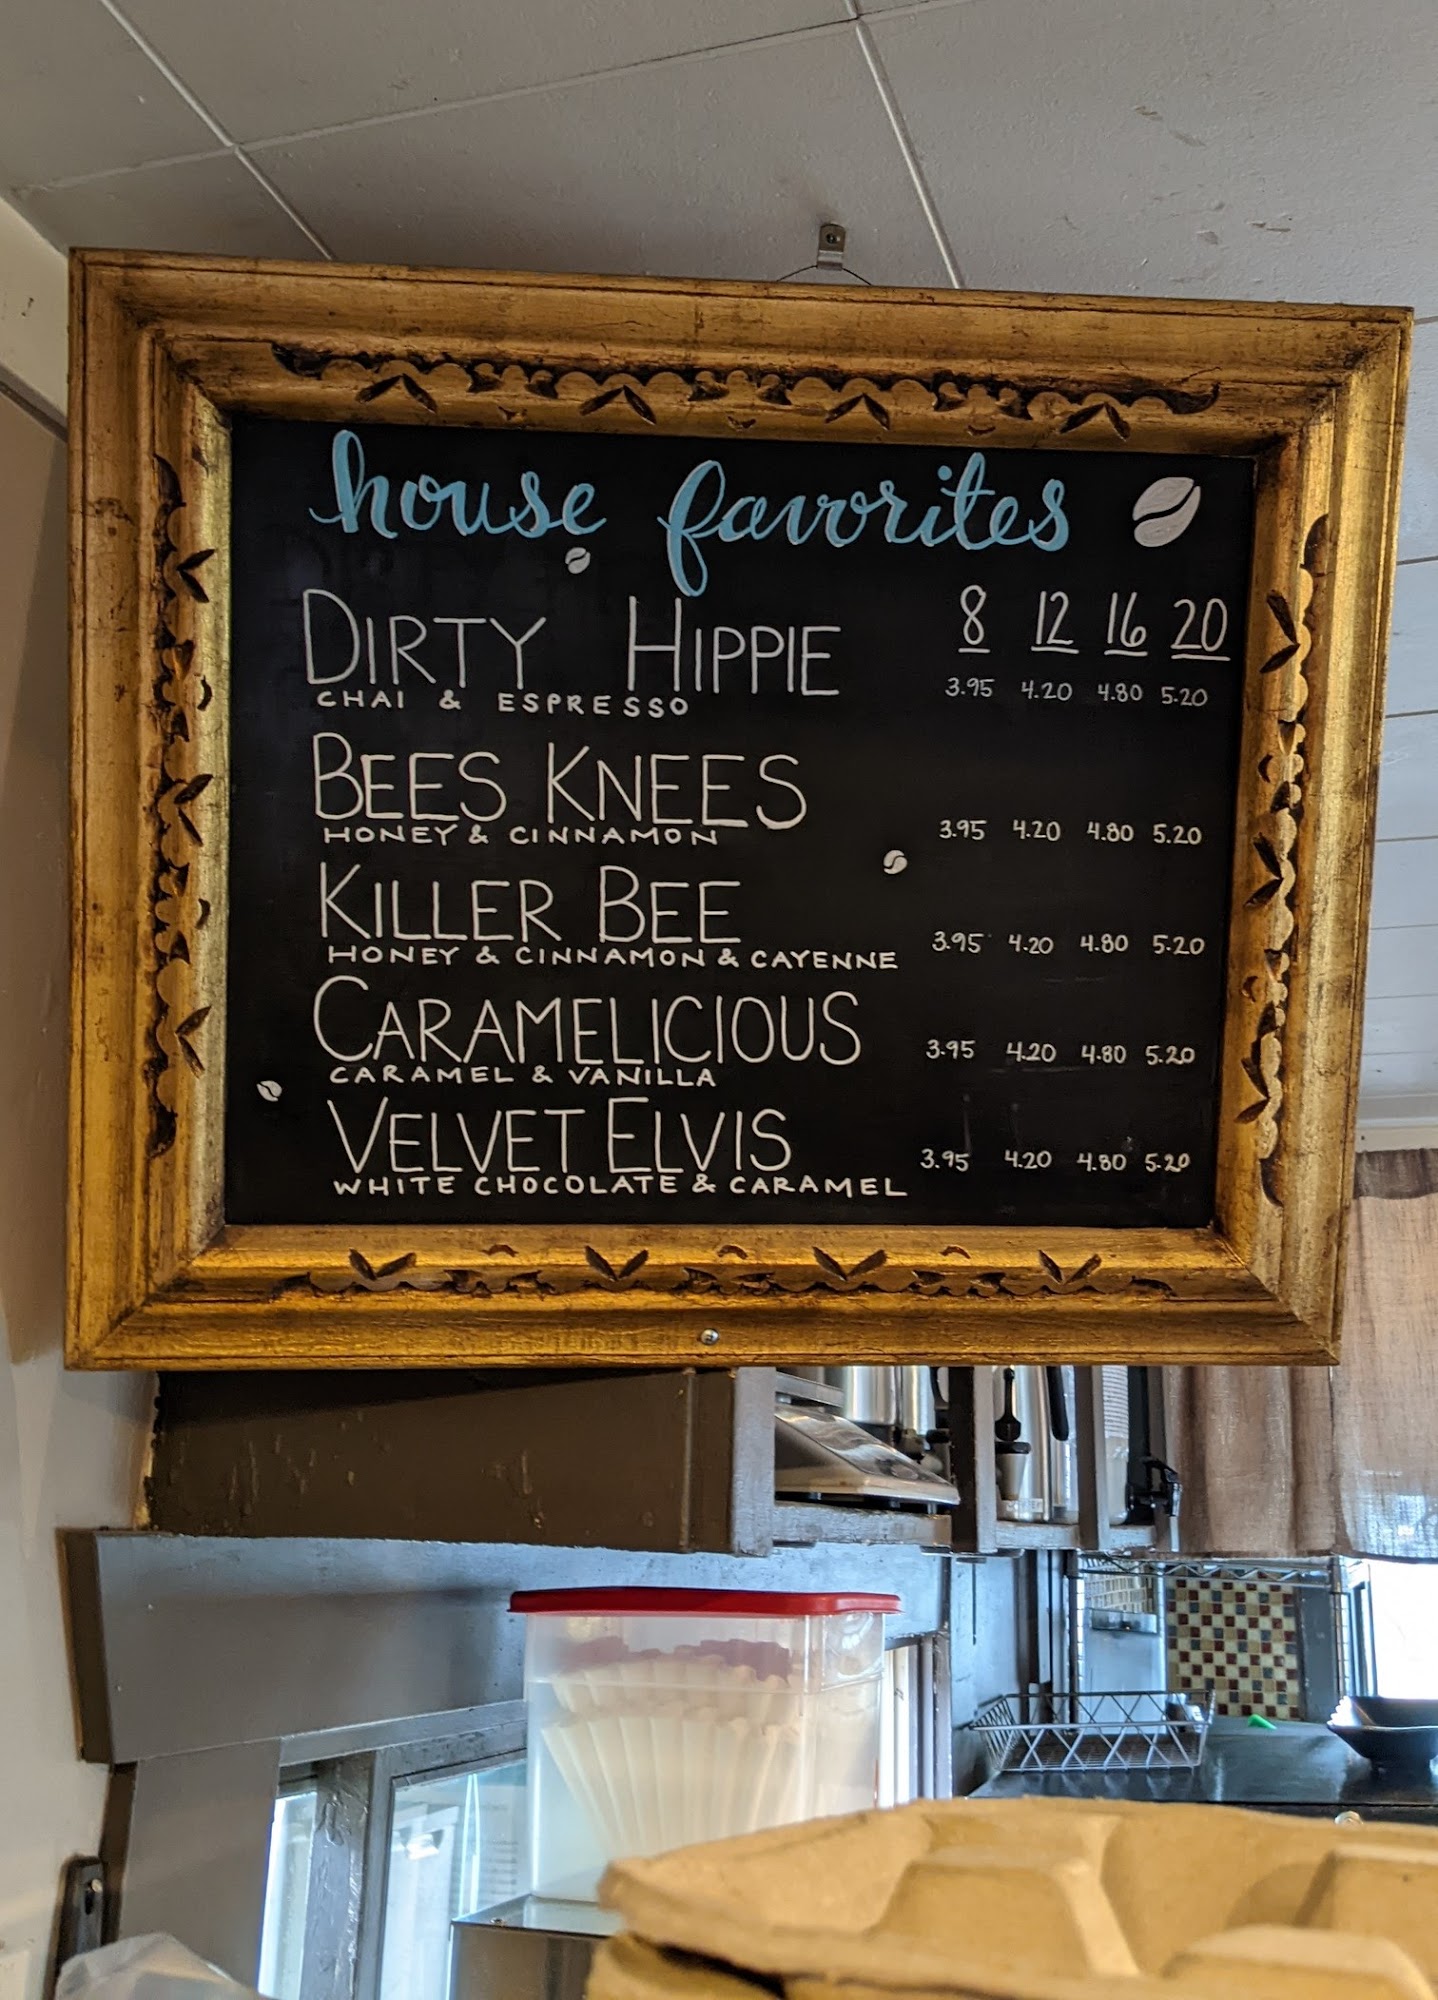 house favorites
DIRTY HIPPIE 8 12 16 20
CHAI & ESPRESSO 3.95 4.20 4.80 5.20
BEES KNEES
HONEY & CINNAMON 3.95 4.20 4.80 5.20
KILLER BEE
HONEY & CINNAMON & CAYENNE 3.95 4.20 4.80 5.20
CARAMELICIOUS 3.95 4.20 4.80 5.20
CARAMEL & VANILLA
VELVET ELVIS 3.95 4.20 4.80 5.20
WHITE CHOCOLATE & CARAMEL